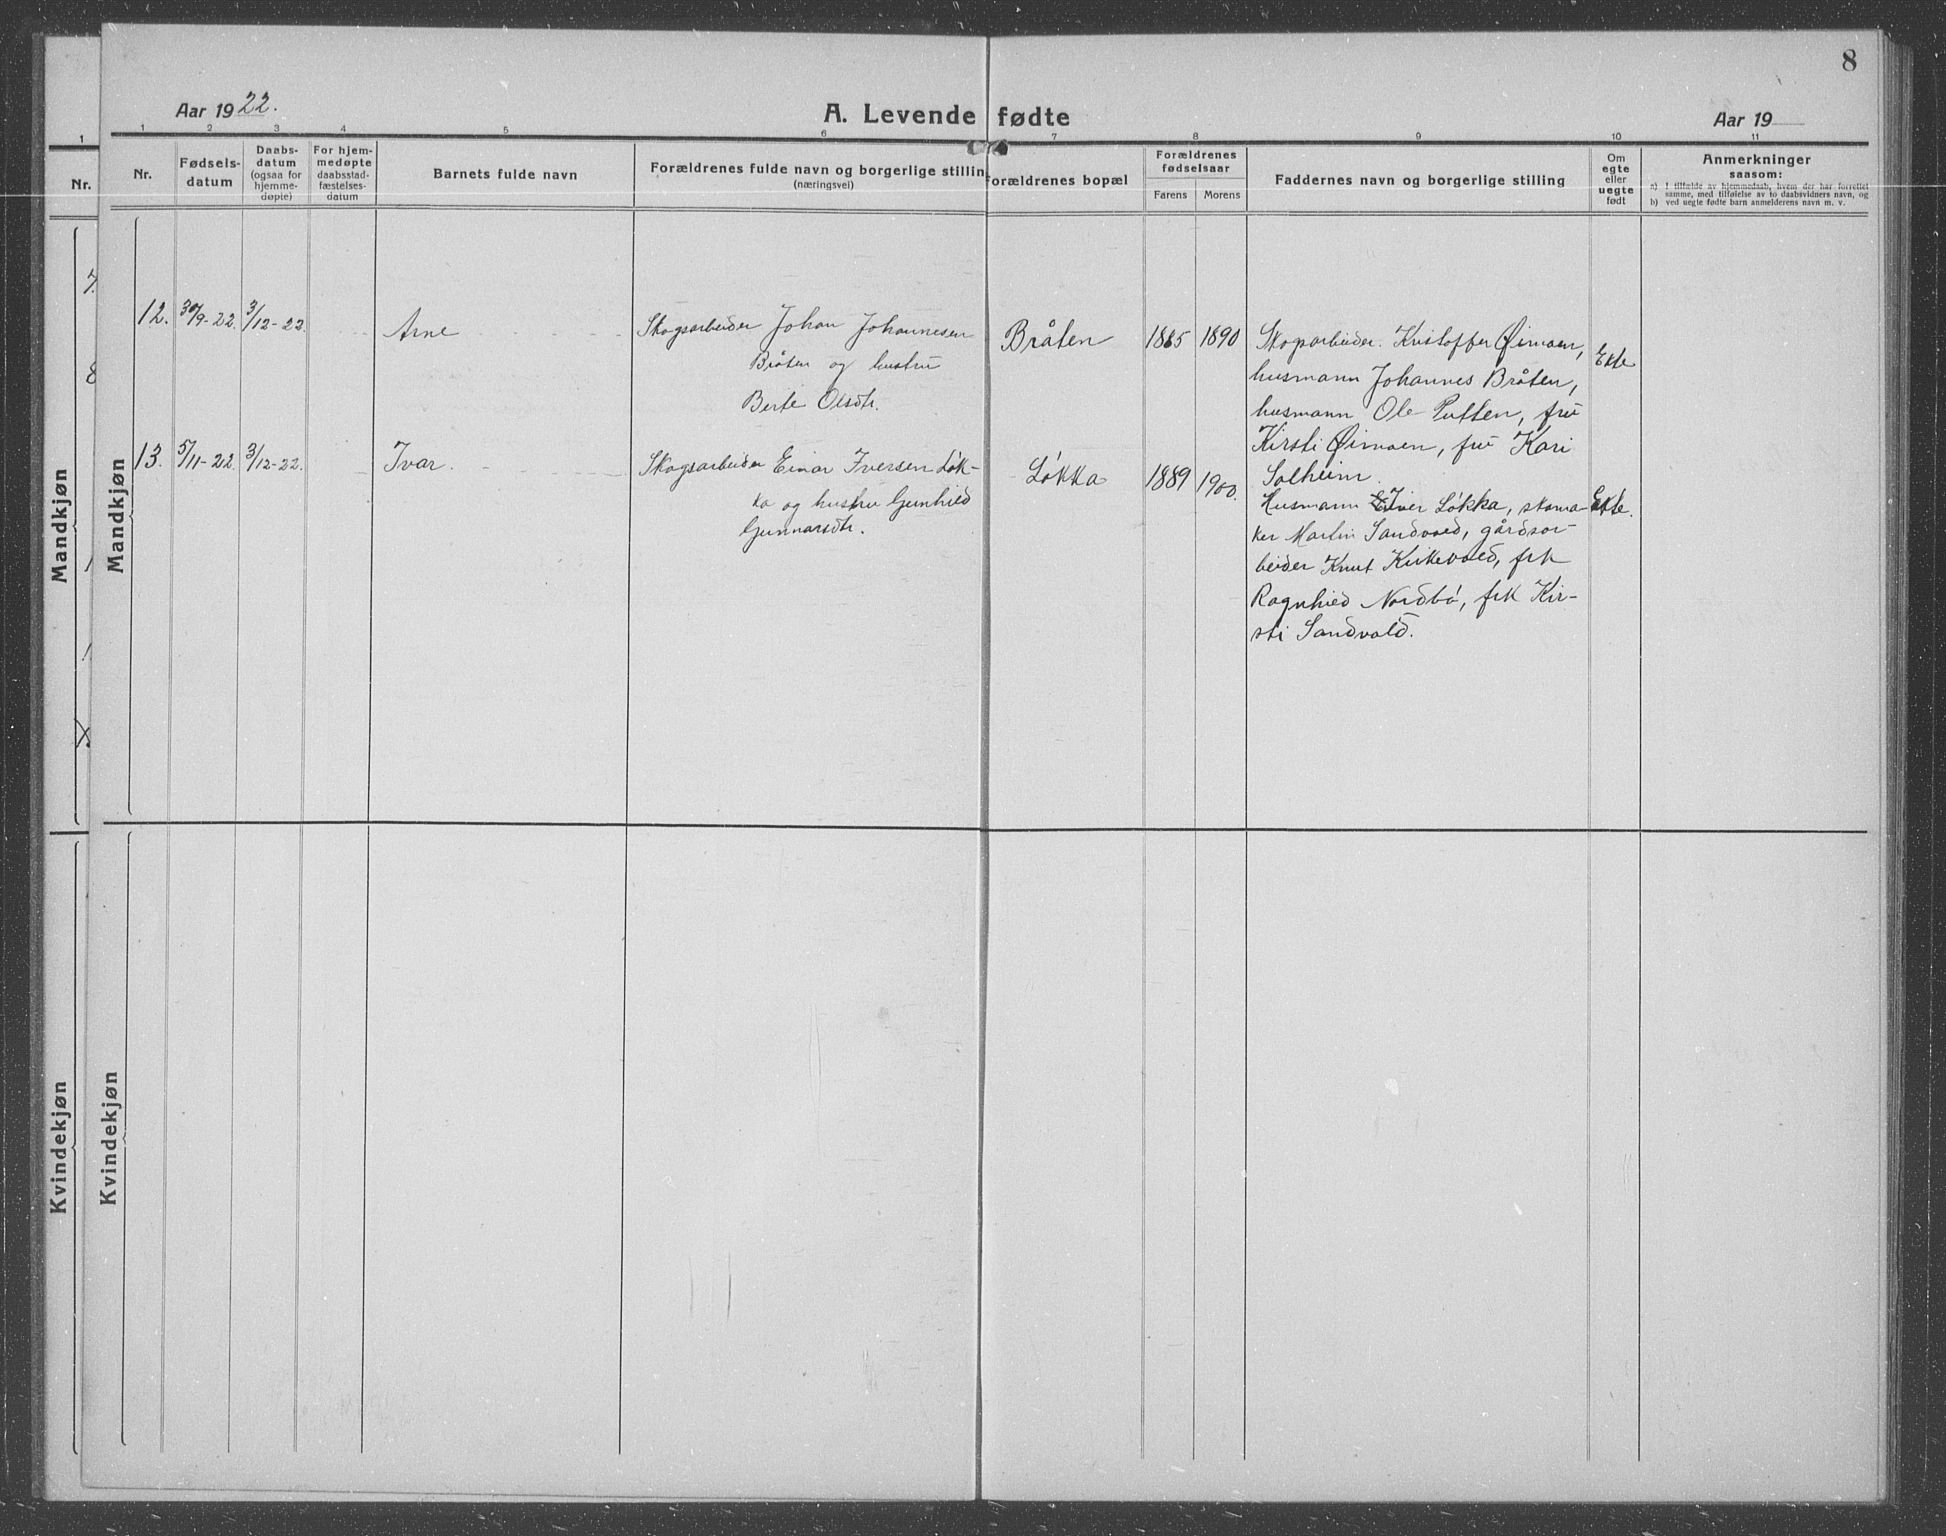 8
Aar 1922.
A. Levende fødte
Aar 19
1
1 2 3 4 5 6 7 8 9 10 11
Nr.
Nr.
Fødsels-
datum
Daabs-
datum
(ogsaa for
hjemme-
døpte)
For hjem-
medøpte
daabsstad-
fæstelses-
datum
Barnets fulde navn
Forældrenes fulde navn og borgerlige stilling
(næringsvei)
Forældrenes bopæl
Forældrenes
fødselsaar
Farens Morens
Faddernes navn og borgerlige stilling
Om
egte
eller
uegte
født
Anmerkninger
saasom:
a) I tilfælde av hjemmedaab, hvem der har forrettet
samme, med tilføielse av to daabsvidners navn, og
b) ved uegte fødte barn anmelderens navn m. v.
7.
8
Mandkjøn
Mandkjøn
12. 30/9-22. 3/12-22. Arne
Skogsarbeider Johan Johannesen
Bråten og hustru
Berte Olsdtr.
Bråten 1885 1890
Skogsarbeider. Kristoffer Øimoen,
husmann Johannes Bråten,
husmann Ole Putten, fru
Kirsti Øimoen, fru Kari
Solheim.
Ekte
13. 5/11-22. 3/12-22. Ivar.
Skogsarbeider Einar Iversen Løk-
ka og hustru Gunhild
Gunnarsdtr.
Løkka 1889 1900.
Husmann Iver Løkka, skoma-
ker Martin Sandvold, gårdsar-
beider Knut Kirkevold, frk
Ragnhild Nordbø, frk Kir-
sti Sandvold.
Ekte.
Kvindekjøn
Kvindekjøn